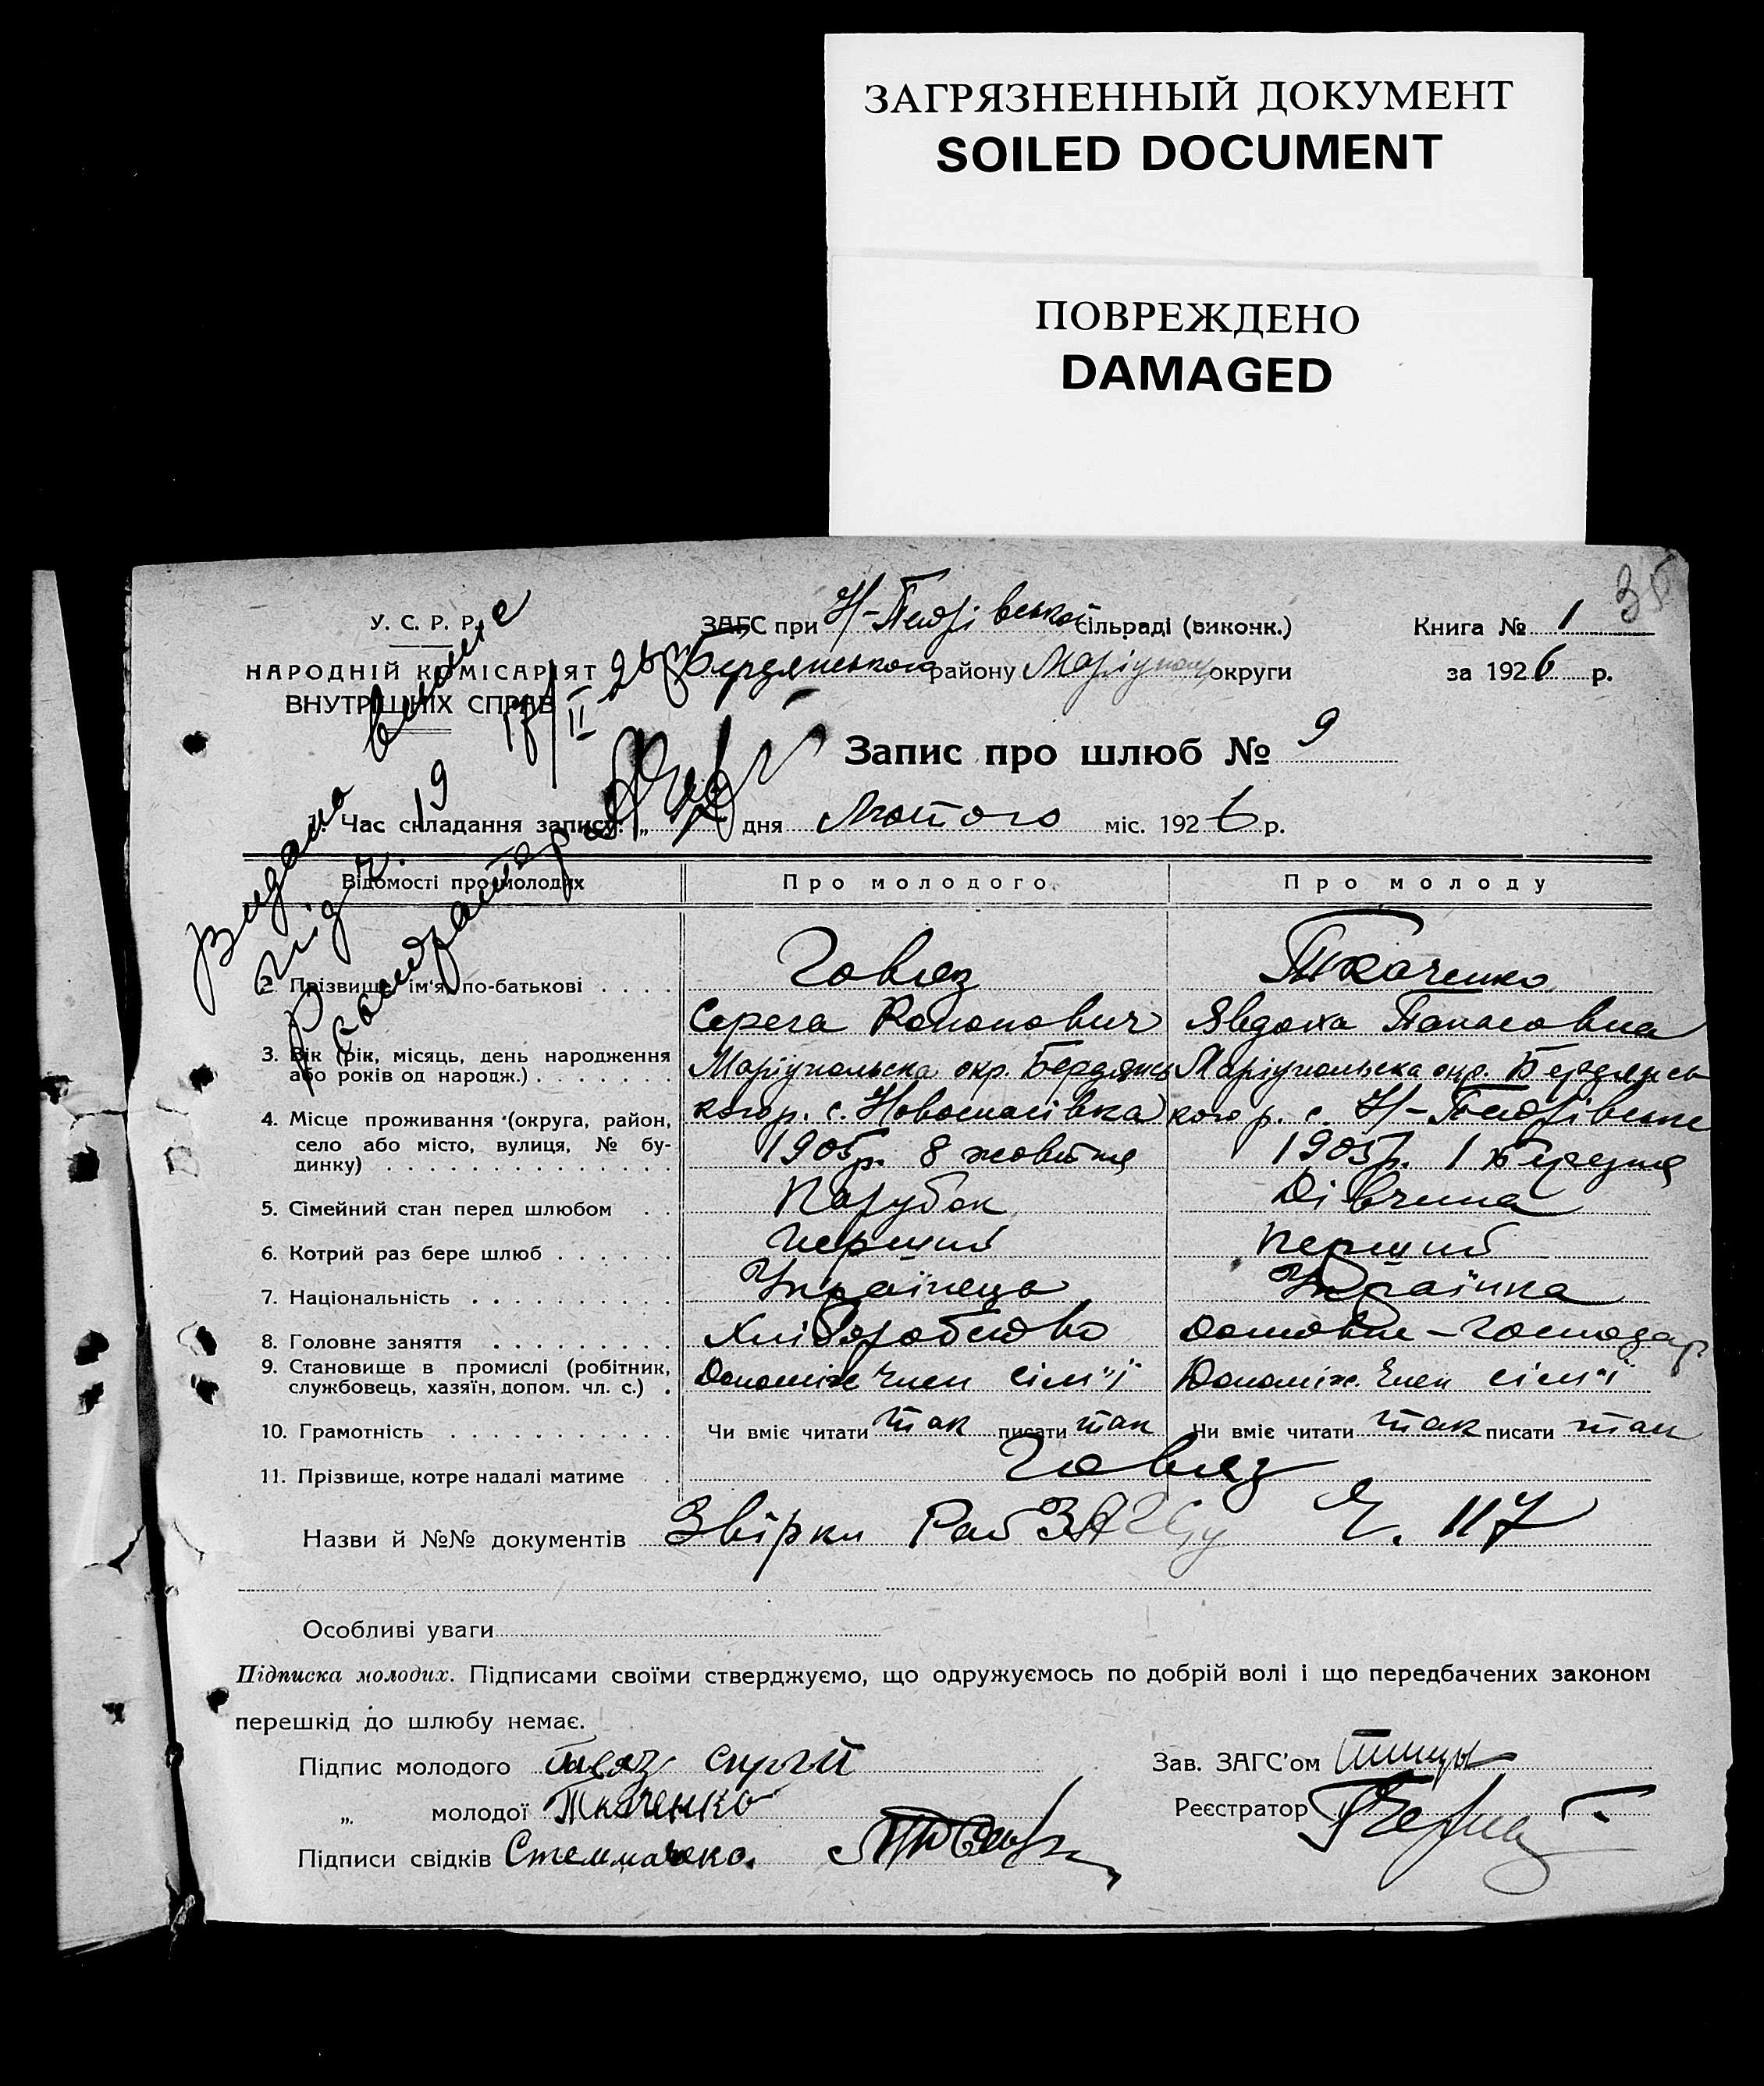 ЗАГРЯЗНЕННЫЙ ДОКУМЕНТ
SOILED DOCUMENT
ПОВРЕЖДЕНО
DAMAGED
35
У. С. Р. Р.
НАРОДНІЙ КОМІСАРІЯТ
ВНУТРІШНІХ СПРАВ
ЗАГС при Н-Петрівської сільраді (виконк.)
Бердянського району Маріупол округи
Книга № 1
за 1926 р.
Видана
під ч. 19
Запис про шлюб № 9
1. Час складання запису: „ дня Лютого міс. 1926 р.
Відомості про молодих Про молодого. Про молоду
2. Прізвище, ім'я, по-батькові . . . . Говяз Ткаченко
Серега Кононович Явдоха Панасовна
3. Вік (рік, місяць, день народження або років од народж.) . . . . . . . Маріупольска окр. Бердянсь Маріупольска окр. Бердянсь
4. Місце проживання (округа, район, село або місто, вулиця, № будинку) . . . . . . . . . . . . . . . кого р. с. Новоспасівка кого р. с. Н-Петрівське
1905р. 8 жовтня 1905р. 1 березня
5. Сімейний стан перед шлюбом . . Парубок Дівчина
6. Котрий раз бере шлюб . . . . . . Перший Перший
7. Національність . . . . . . . . . . Українець Українка
8. Головне заняття . . . . . . . . . Хліборобство Домовне-Господар
9. Становище в промислі (робітник, службовець, хазяїн, допом. чл. с.) . Допоміж член сім'ї Допоміж. член сім'ї
10. Грамотність . . . . . . . . . . . Чи вміє читати так писати так Чи вміє читати так писати так
11. Прізвище, котре надалі матиме . . Говяз
Назви й №№ документів Звірки Рай ЗАГСу Ч. 117
Особливі уваги
Підписка молодих. Підписами своїми стверджуємо, що одружуємось по добрій волі і що передбачених законом
перешкід до шлюбу немає.
Підпис молодого Гавяз Сиргій Зав. ЗАГС'ом
„ молодої Ткаченко Реєстратор
Підписи свідків